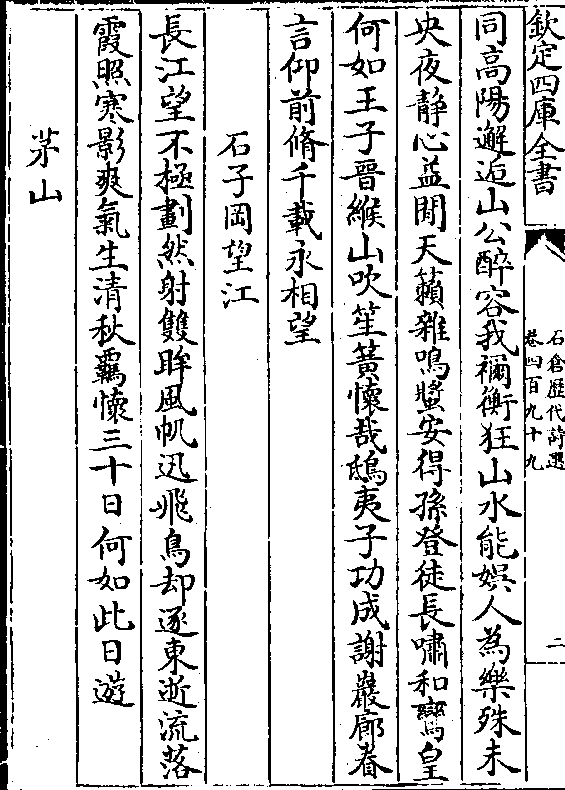 欽定四庫全書
石倉歷代詩選
卷四百九十九
二
同高陽邂逅山公醉容我禰衡狂山水能娛人為樂殊未
央夜靜心益閒天籟雜鳴螿安得孫登徒長嘯和鸞皇
何如王子晉緱山吹笙簧懷哉鴟夷子功成謝巖廊眷
言仰前脩千載永相望
石子岡望江
長江望不極劃然射雙眸風帆迅飛鳥却逐東逝流落
霞照寒影爽氣生清秋羈懷三十日何如此日遊
茅山